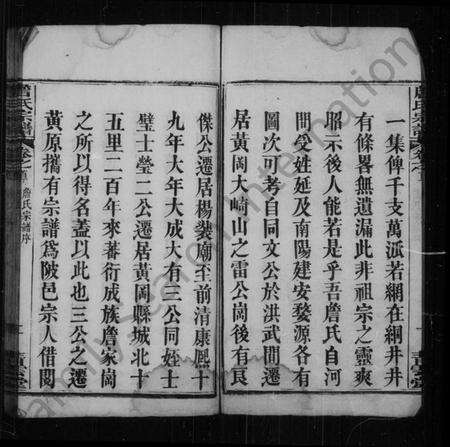 詹氏宗譜
一集俾千支萬派若網在綱井井
有條畧無遺漏此非祖宗之靈爽
昭示後人能若是乎吾詹氏自河
間受姓延及南陽建安婺源各有
圖次可考自同文公於洪武間遷
居黃岡大崎山之雷公崗後有良
傑公遷居楊裝廟至前清康熙十
九年大年大成大有三公同姪士
璧士瑩二公遷居黃岡縣城北十
五里二百年來蕃衍成族詹家崗
之所以得名蓋以此也三公之遷
黃原攜有宗譜爲陂邑宗人借閱
詹氏宗譜
詹氏宗譜序
Family Search International